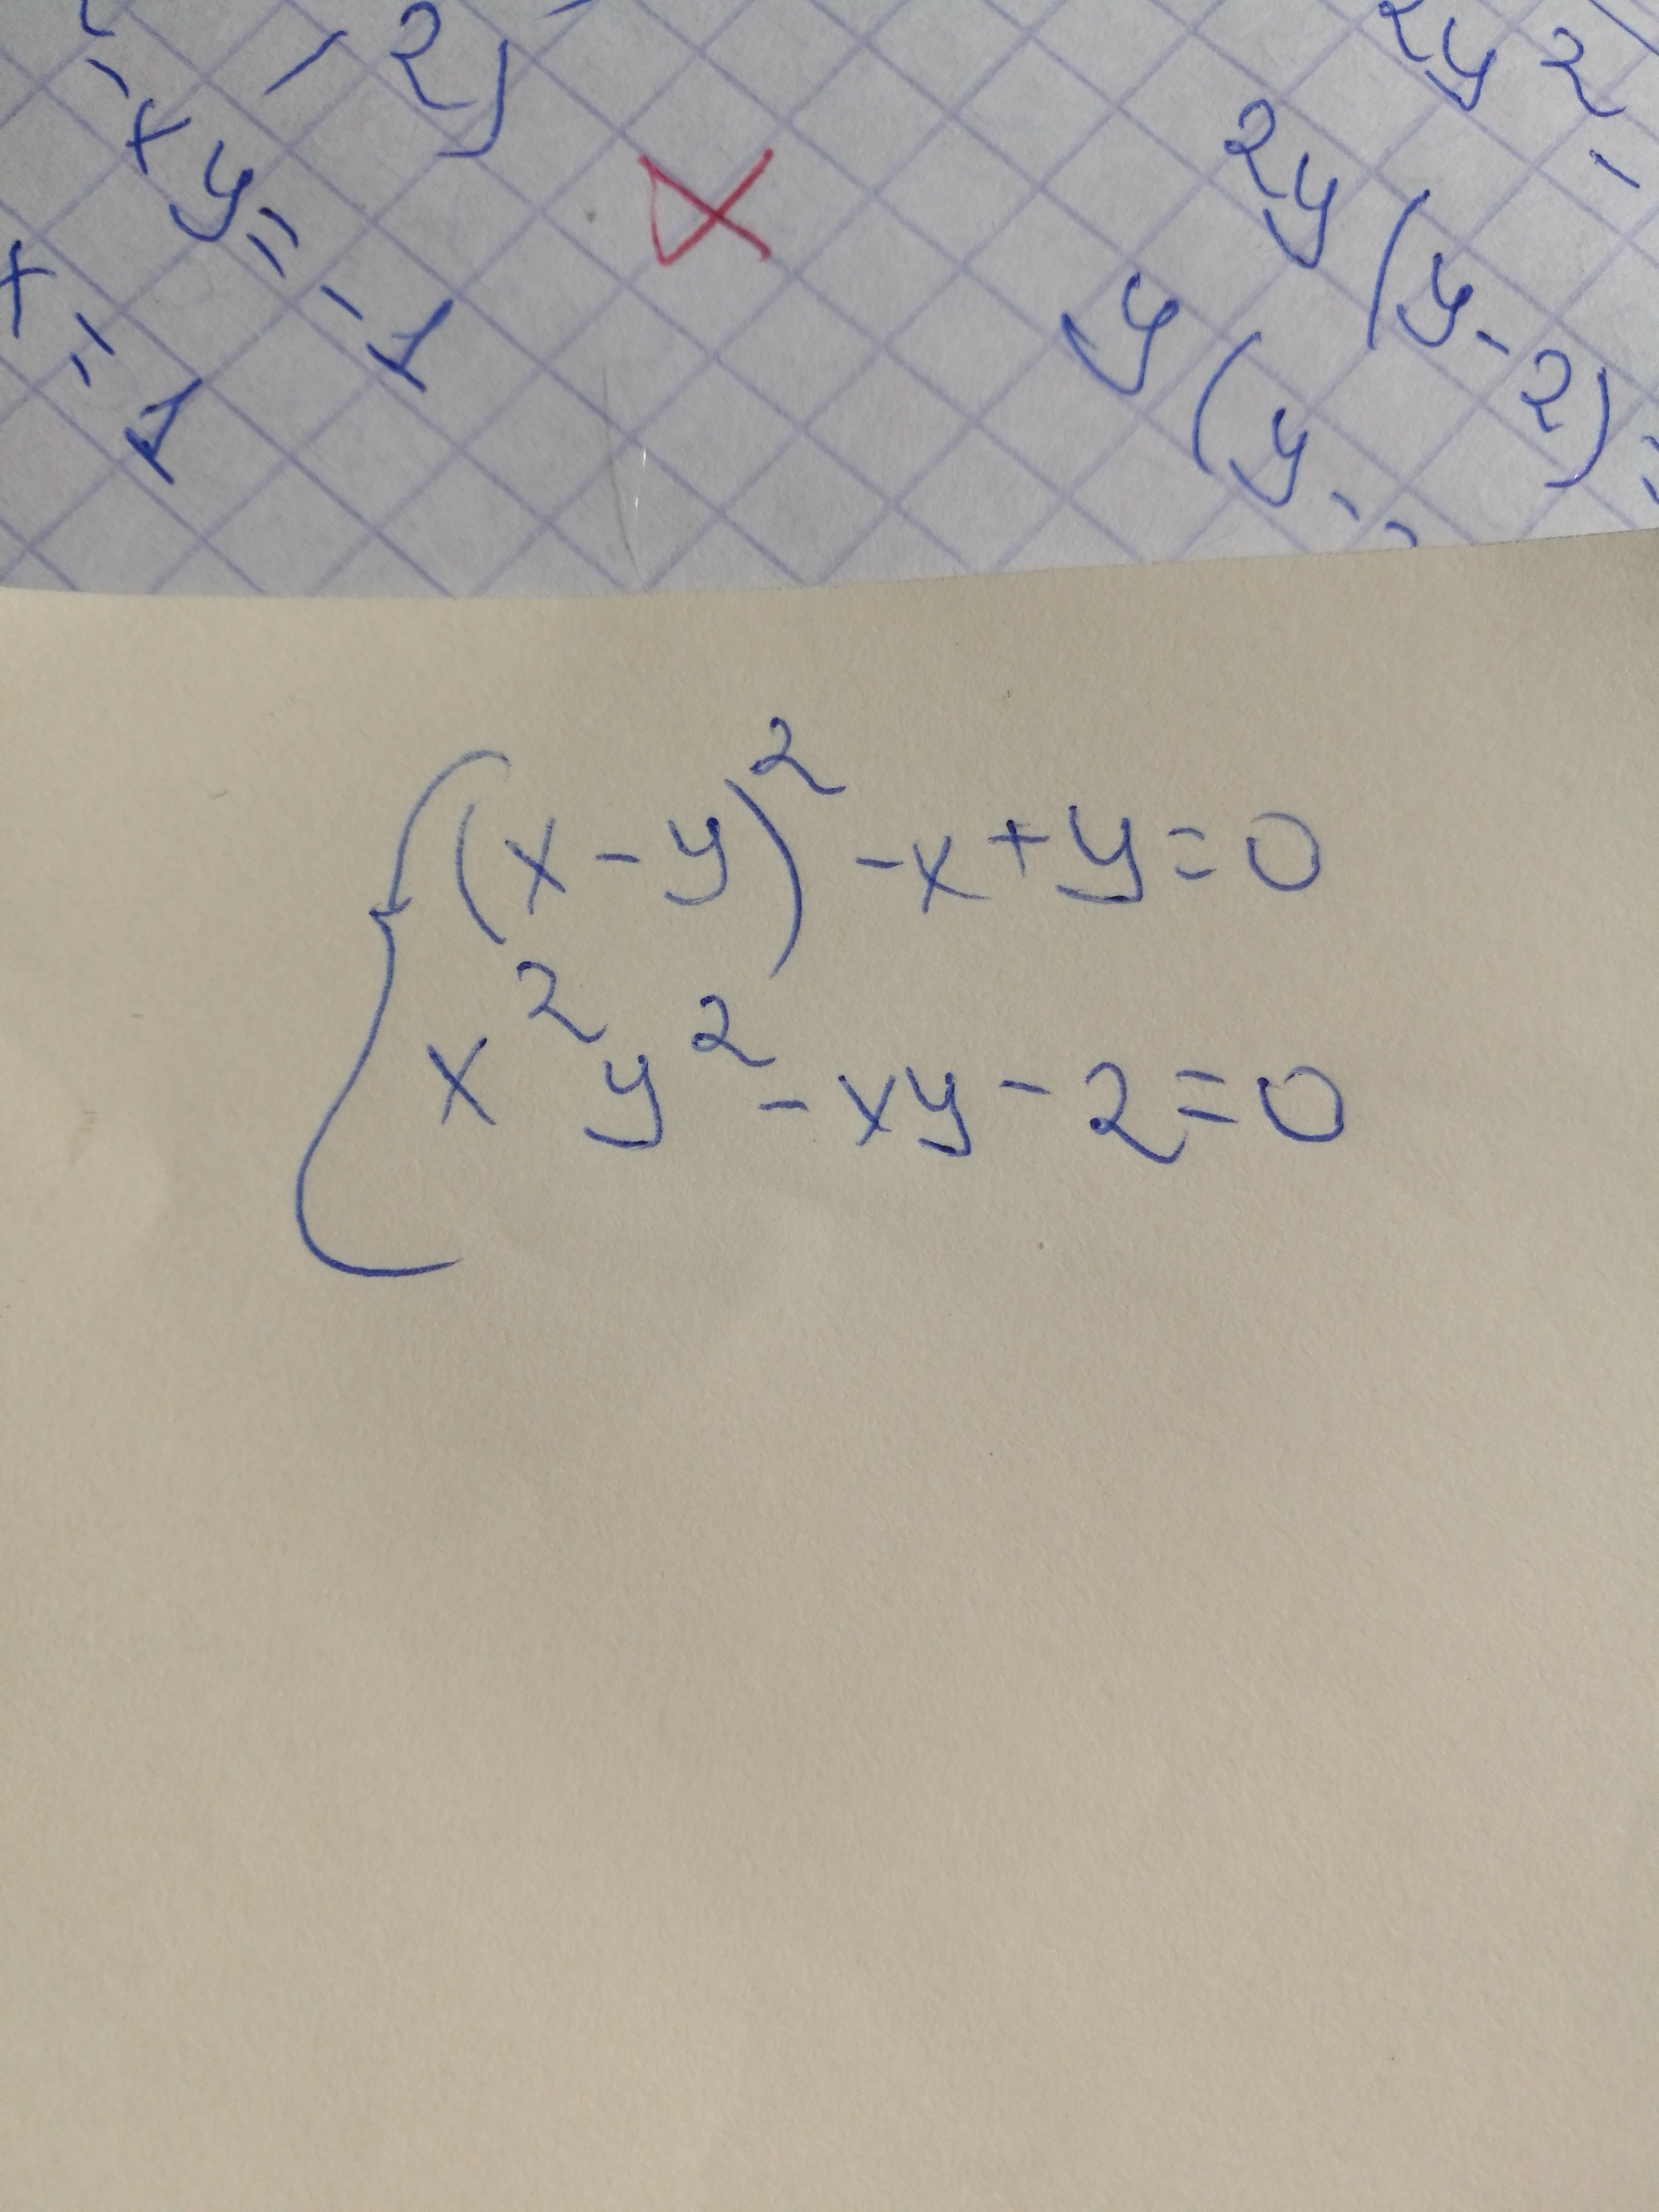 2)
-xy=-1
x=1
2y²-
2y(y-2)=
y(y-
(x-y)²-x+y=0
x²y²-xy-2=0